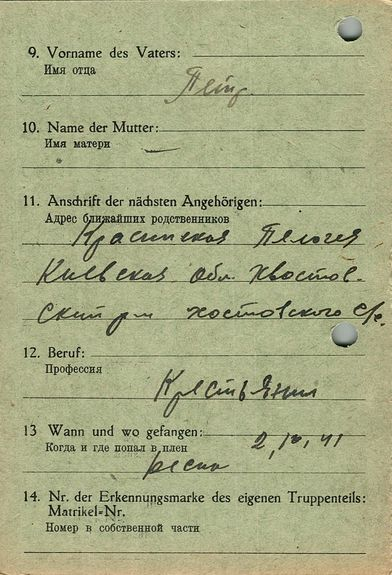 9. Vorname des Vaters:
Имя отца
Петр
10. Name der Mutter:
Имя матери
—
11. Anschrift der nächsten Angehörigen:
Адрес ближайших родственников
Красицкая Пелагея
Киевская обл. Хвостов-
ский р-н хостовского с/с
12. Beruf:
Профессия
Крестьянин
13 Wann und wo gefangen:
Когда и где попал в плен
2, IX, 41
14. Nr. der Erkennungsmarke des eigenen Truppenteils:
Matrikel-Nr.
Номер в собственной части